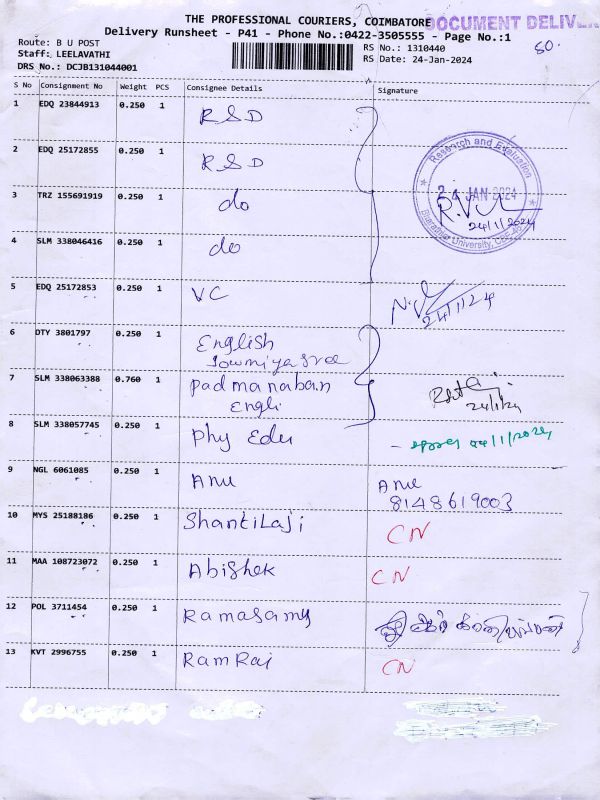 THE PROFESSIONAL COURIERS, COIMBATORE
DOCUMENT DELIVER
Delivery Runsheet - P41 - Phone No.:0422-3505555 - Page No.:1
Route: B U POST
Staff: LEELAVATHI
DRS No.: DCJB131044001
RS No.: 1310440
RS Date: 24-Jan-2024
80.
S No Consignment No Weight PCS Consignee Details Signature
1 EDQ 23844913 0.250 1 R&D
2 EDQ 25172855 0.250 1 R&D
Research and Evaluation
24 JAN 2024
24/1/2024
Bharathiar University, CBE-46
3 TRZ 155691919 0.250 1 do
4 SLM 338046416 0.250 1 do
5 EDQ 25172853 0.250 1 VC
24/1/24
6 DTY 3801797 0.250 1 English
Sowmiya sree
7 SLM 338063388 0.760 1 Padmanaban
Engli
24/1/24
8 SLM 338057745 0.250 1 Phy Edu
24/1/2024
9 NGL 6061085 0.250 1 Anu Anu
8148619003
10 MYS 25188186 0.250 1 Shantilaji CN
11 MAA 108723072 0.250 1 Abishek CN
12 POL 3711454 0.250 1 Ramasamy
13 KVT 2996755 0.250 1 RamRaj CN